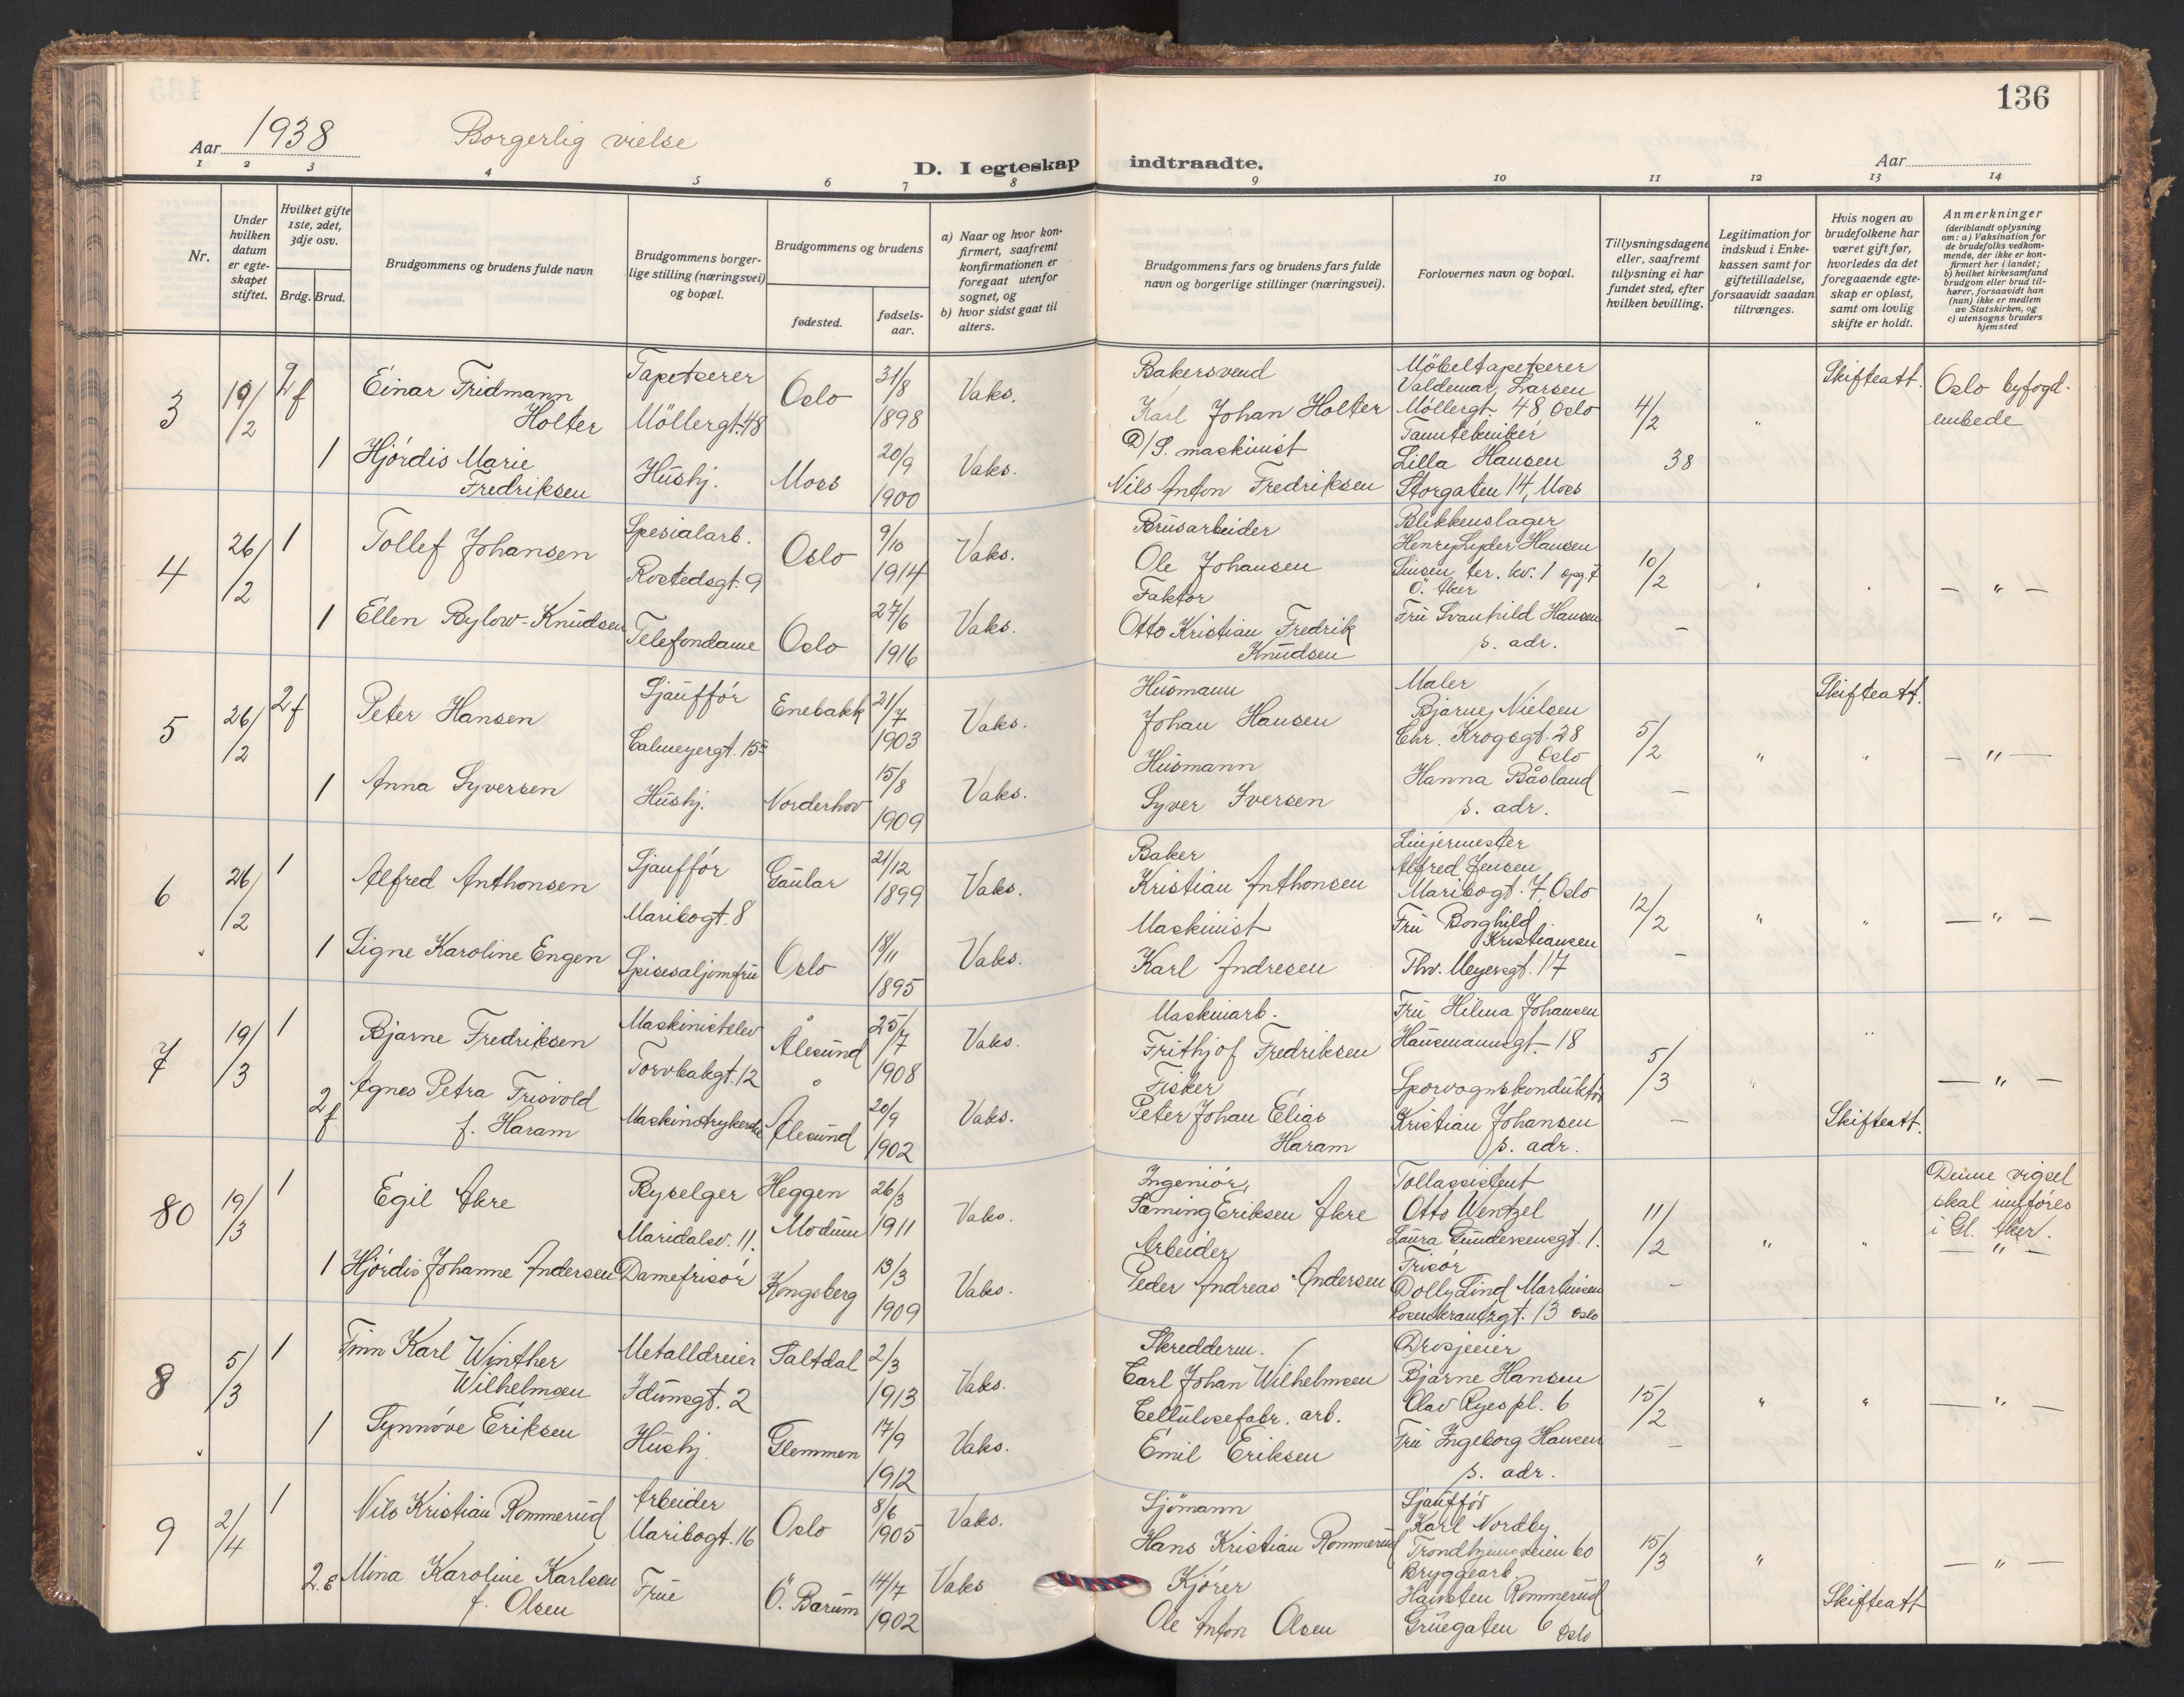 136
Aar 1938
Borgerlig vielse
D. I egteskap indtraadte.
Aar
1 2 3 4 5 6 7 8 9 10 11 12 13 14
Nr.
Under hvilken datum er egteskapet stiftet.
Hvilket gifte 1ste, 2det, 3dje osv.
Brdg. Brud.
Brudgommens og brudens fulde navn
Brudgommens borgerlige stilling (næringsvei) og bopæl.
Brudgommens og brudens
fødested.
fødselsaar.
a) Naar og hvor konfirmert, saafremt konfirmationen er foregaat utenfor sognet, og
b) hvor sidst gaat til alters.
Brudgommens fars og brudens fars fulde navn og borgerlige stillinger (næringsvei).
Forlovernes navn og bopæl.
Tillysningsdagene eller, saafremt tillysning ei har fundet sted, efter hvilken bevilling.
Legitimation for indskud i Enkekassen samt for giftetilladelse, forsaavidt saadan tiltrænges.
Hvis nogen av brudefolkene har været gift før, hvorledes da det foregaaende egteskap er opløst, samt om lovlig skifte er holdt.
Anmerkninger (deriblandt oplysning om: a) Vaksination for de brudefolks vedkommende, der ikke er konfirmert her i landet; b) hvilket kirkesamfund brudgom eller brud tilhører, forsaavidt han (hun) ikke er medlem av Statskirken, og c) utensogns bruders hjemsted
3 19/2 2f Einar Fridmann Holter Tapetserer Möllergt. 48 Oslo 31/8 1898 Vaks. Bakersvend Karl Johan Holter Möbeltapetserer Valdemar Larsen Møllergt. 48 Oslo 4/2 " Skifteatt. Oslo byfogdembede
1 Hjördis Marie Fredriksen Hushj. Moss 20/9 1900 Vaks. D/S. maskinist Nils Anton Fredriksen Tanntekniker Lilla Hansen Storgaten 14, Moss 38
4 26/2 1 Tollef Johansen Spesialarb. Rostedsgt. 9 Oslo 9/10 1914 Vaks. Brusarbeider Ole Johansen Blikkenslager Henry Lyder Hansen Sinsen ter. kv. 1 opg. 7 Ö. Aker 10/2 " " — " —
1 Ellen Bylow-Knudsen Telefondame Oslo 27/6 1916 Vaks. Faktor Otto Kristian Fredrik Knudsen Fru Svanhild Hansen s. adr. —
5 26/2 2f Peter Hansen Sjauffór Calmeyergt. 15 Enebakk 21/7 1903 Vaks. Husmann Johan Hansen Maler Bjarne Nielsen Chr. Krogsgt. 28 Oslo 5/2 " " Skifteatt. — " —
1 Anna Syversen Hushj. Norderhov 15/8 1909 Vaks. Husmann Syver Iversen Hanna Båsland s. adr. —
6 26/2 1 Alfred Anthonsen Sjauffór Maribogt. 8 Gaular 21/12 1899 Vaks. Baker Kristian Anthonsen Linjermester Alfred Jensen Maribogt. 7, Oslo 12/2 " " — " —
1 Signe Karoline Engen Spisesaljomfru Oslo 18/11 1895 Vaks. Maskinist Karl Andresen Fru Borghild Kristiansen Thv. Meyersgt. 17 —
7 19/3 1 Bjarne Fredriksen Maskinistelev Torvbakgt. 12 Ålesund 25/7 1908 Vaks. Maskinarb. Frithjof Fredriksen Fru Hilma Johansen Hausmannsgt. 18 5/3 " " — " —
2f Agnes Petra Frisvold f. Haram Ålesund 20/9 1902 Vaks. Fisker Peter Johan Elias Haram Sporvognskonduktör Kristian Johansen s. adr. — Skifteatt.
80 19/3 1 Egil Akre Byselger Maridalsv. 11. Heggen Modum 26/3 1911 Vaks. Ingeniör Sæming Eriksen Akre Tollassistent Otto Wentzel Laura Gundersensgt. 1. 11/2 " " Denne vigsel skal innföres i Gl. Aker. — " —
1 Hjördis Johanne Andersen Damefrisör Kongsberg 13/3 1909 Vaks. Arbeider Peder Andreas Andersen Frisör Dolly Lind Martinsen Rosenkrantzgt. 13 Oslo —
8 5/3 1 Finn Karl Winther Wilhelmsen Metalldreier Idunsgt. 2 Saltdal 2/3 1913 Vaks. Skredderm. Carl Johan Wilhelmsen Drosjeeier Bjarne Hansen Olav Ryespl. 6 15/2 " " — " —
1 Synnöve Eriksen Hushj. Glemmen 17/9 1912 Vaks. Cellulosefabr. arb. Emil Eriksen Fru Ingeborg Hansen s. adr. —
9 2/4 1 Nils Kristian Rommerud Arbeider Maribogt. 16 Oslo 8/6 1905 Vaks. Sjömann Hans Kristian Rommerud Sjaufför Karl Nordby Trondhjemsveien 60 15/3 " — " —
2.E Mina Karoline Karlsen f. Olsen Frue Ö. Bærum 14/7 1902 Vaks Kjörer Ole Anton Olsen Bryggearb. Rommerud Gruegaten 6 Oslo Skifteatt